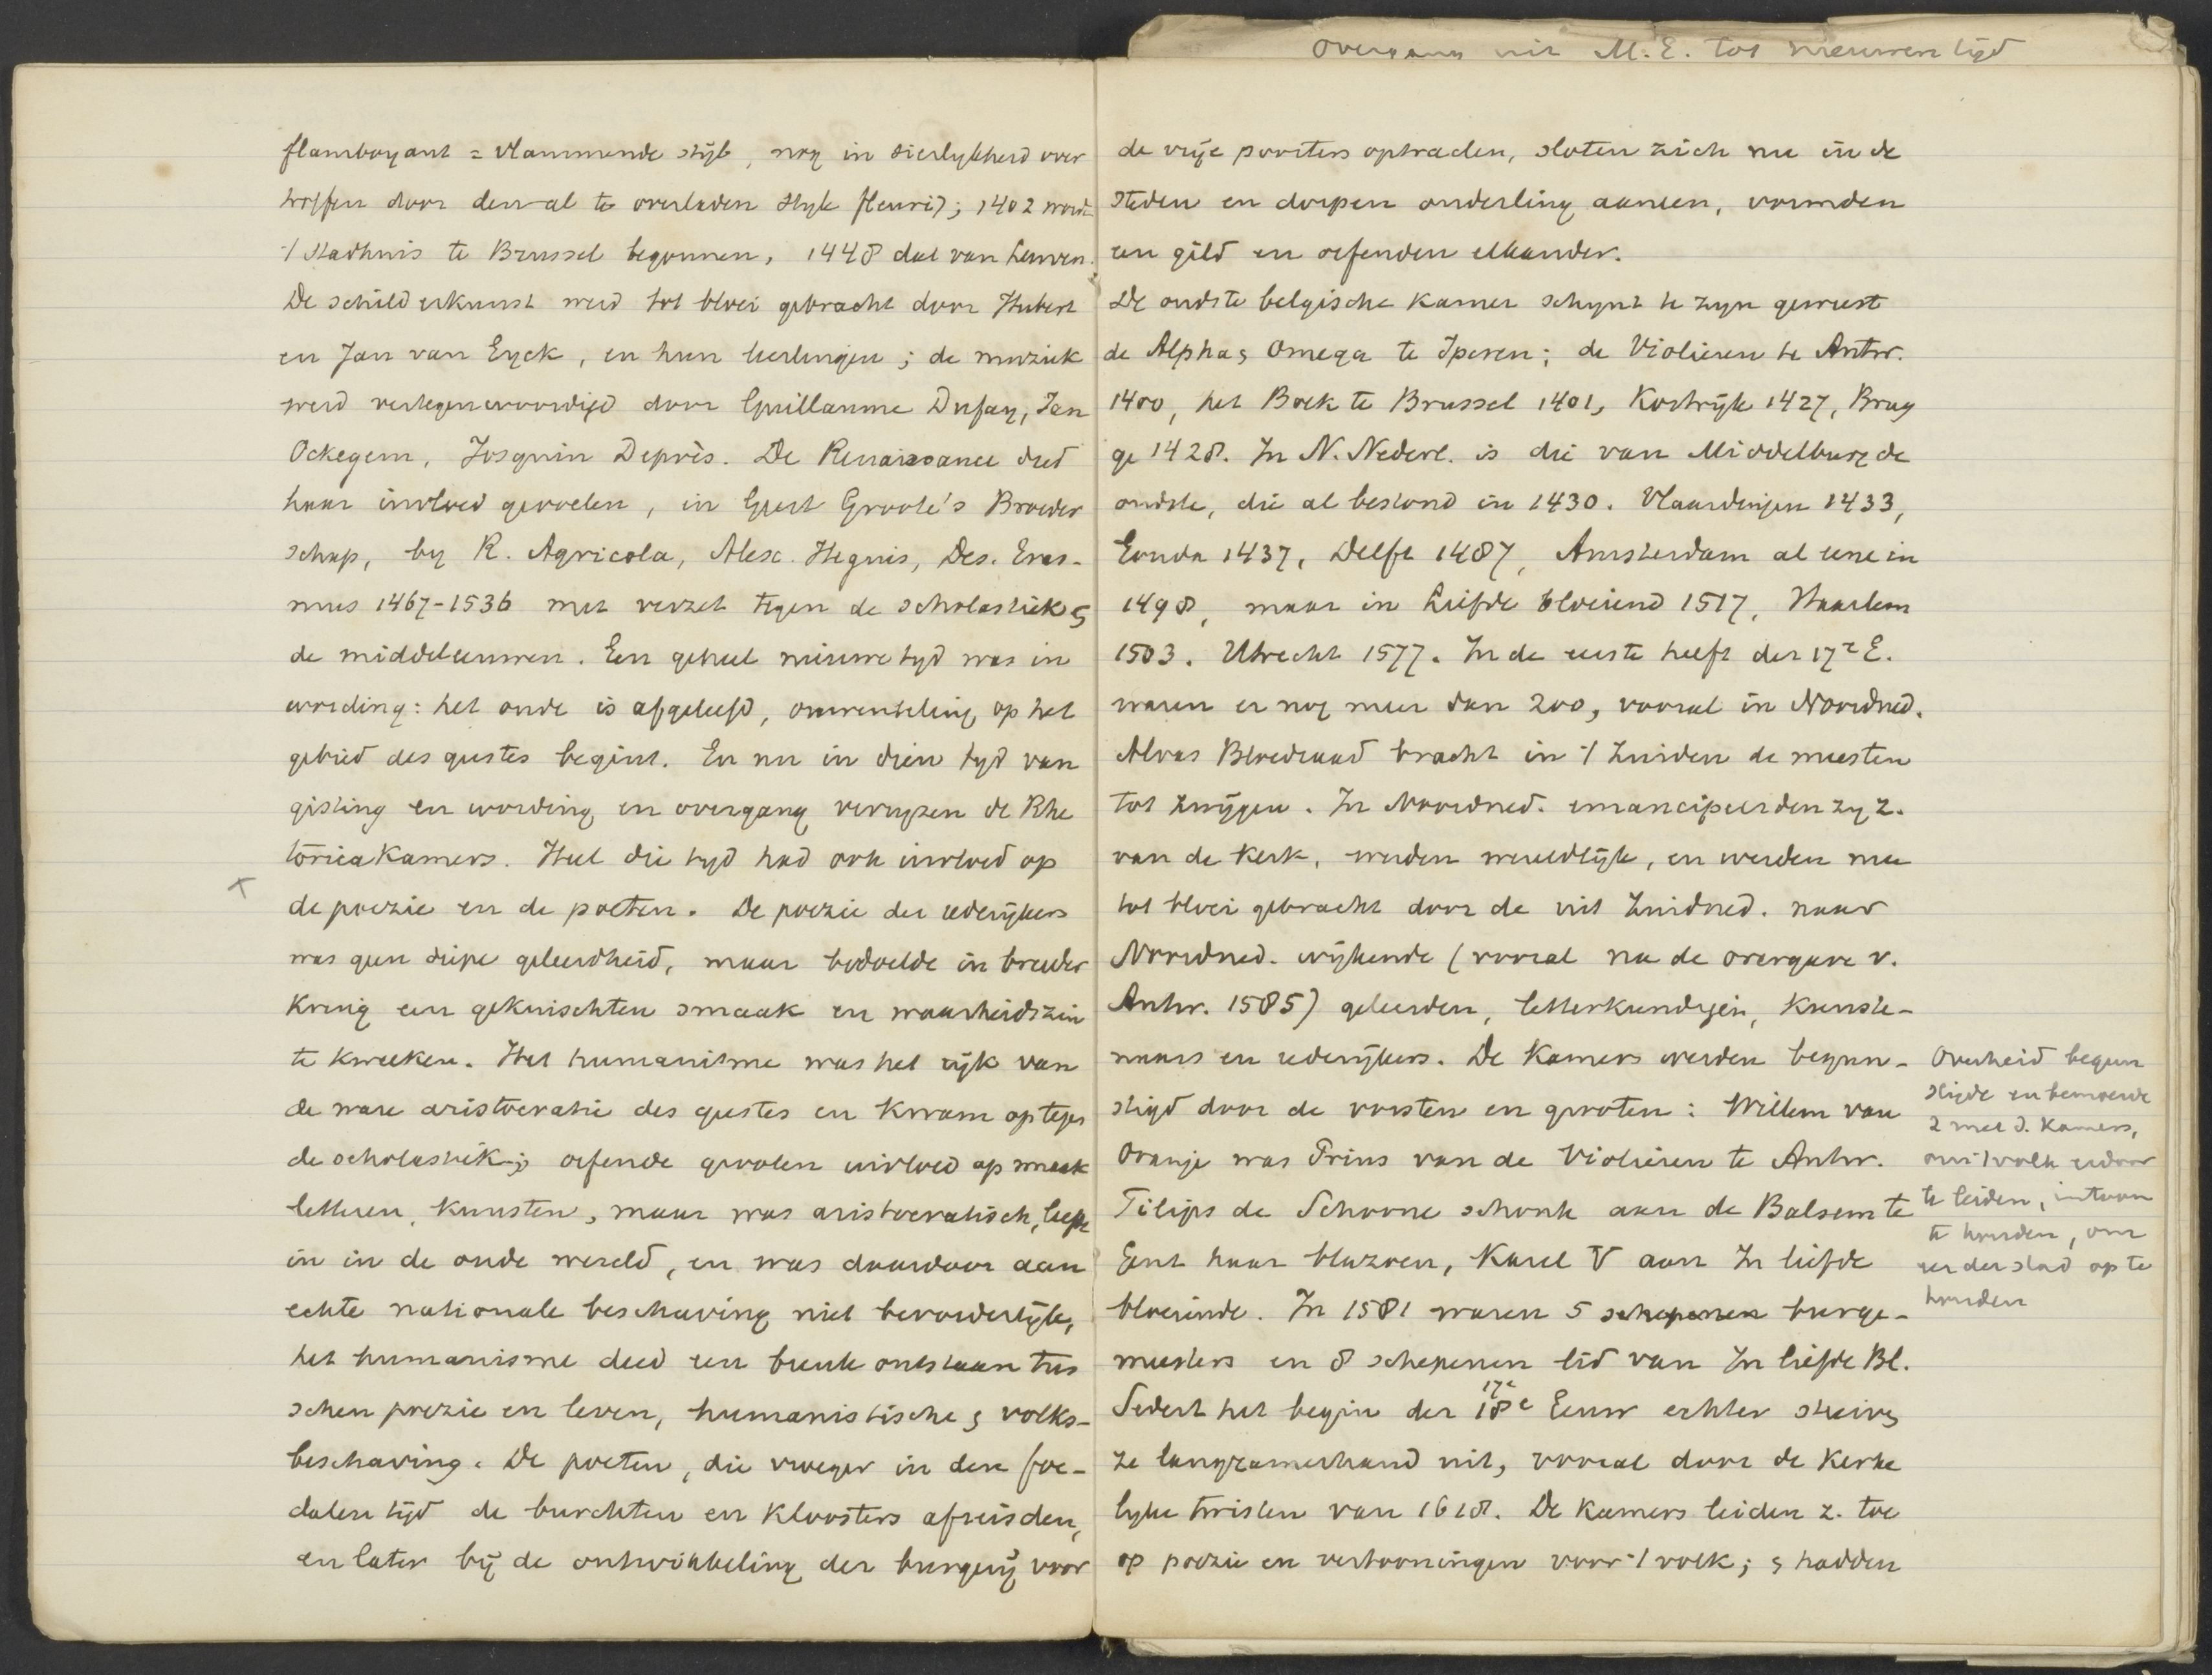 Overgang uit M.E. tot nieuwen tijd
flamboyant = vlammende stijl, nog in sierlykheid over
troffen door den al te overladen styl fleuri); 1402 wordt
't Stadhuis te Brussel begonnen, 1448 dat van Leuven.
De schilderkunst werd tot bloei gebracht door Hubert
en Jan van Eyck, en hun leerlingen; de muziek
werd vertegenwoordigd door Guillaume Dufay, Jan
Ockegem, Josquin Deprès. De Renaissance deed
haar invloed gevoelen, in Geert Groote's Broeder
schap, by R. Agricola, Alex. Hegius, Des. Eras-
mus 1467-1536 met verzet tegen de scholastiek &
de middeleeuwen. Een geheel nieuwe tyd was in
wording: het oude is afgeleefd, omwenteling op het
gebied des geestes begint. En nu in dien tyd van
gisting en wording en overgang verryzen de Rhe
torica Kamers. Heel die tyd had ook invloed op
de poezie en de poeten. De poezie der rederijkers
was geen diepe geleerdheid, maar bedoelde in breeder
kring een gekuischten smaak en waarheidszin
te kweeken. Het humanisme was het rijk van
de ware aristocratie des geestes en kwam op tegen
de scholastiek; oefende grooten invloed op smaak
letteren, kunsten, maar was aristocratisch, leefde
in in de oude wereld, en was daardoor aan
echte nationale beschaving niet bevorderlijk,
het humanisme deed een breuk ontstaan tus
schen poezie en leven, humanistische & volks-
beschaving. De poeten, die vroeger in den feo-
dalen tijd de burchten en Kloosters afreisden,
en later bij de ontwikkeling der burgerij voor
de vrije poorters optraden, sloten zich nu in de
steden en dorpen onderling aaneen, vormden
een gild en oefenden elkander.
De oudste belgische Kamer schynt te zyn geweest
de Alpha & Omega te Iperen; de Violieren te Antw.
1400, het Boek te Brussel 1401, Kortrijk 1427, Brug
ge 1428. In N. Nederl. is die van Middelburg de
oudste, die al bestond in 1430. Vlaardingen 1433,
Gouda 1437, Delft 1487, Amsterdam al eene in
1498, maar in Liefde bloeiend 1517, Haarlem
1503. Utrecht 1577. In de eerste helft der 17e E.
waren er nog meer dan 200, vooral in Noordned.
Alvas Bloedraad bracht in 't Zuiden de meesten
tot zwijgen. In Noordned. emancipeerden zy z.
van de Kerk, werden wereldlijk, en werden mee
tot bloei gebracht door de uit Zuidned. naar
Noordned. wijkende (vooral na de overgave v.
Antw. 1585) geleerden, letterkundigen, kunste-
naars en rederijkers. De Kamers werden begun-
stigd door de vorsten en grooten: Willem van
Oranje was Prins van de Violieren te Antw.
Filips de Schoone schonk aan de Balsem te
Gent haar blazoen, Karel V aan In liefde
bloeiende. In 1581 waren 5 schepenen burge-
meesters en 8 schepenen lid van In liefde Bl.
Sedert het begin der 18e 17e Eeuw echter stierven
ze langzamerhand uit, vooral door de Kerke
lyke twisten van 1618. De Kamers leiden z. toe
op poezie en vertooningen voor 't volk; & hadden
Overheid begun
stigde en bemoeide
z met d. Kamers,
om 't volk erdoor
te leiden, in toom
te houden, om
eer der stad op te
houden